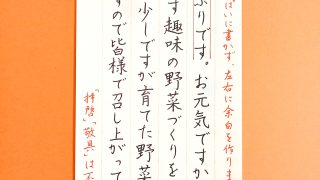 ぱいに書かず、左右に余白を作りま
ぶりです。お元気ですか
す趣味の野菜づくりを
少しですが育てた野菜
すので皆様で召し上がって
「拝啓」「敬具」は不